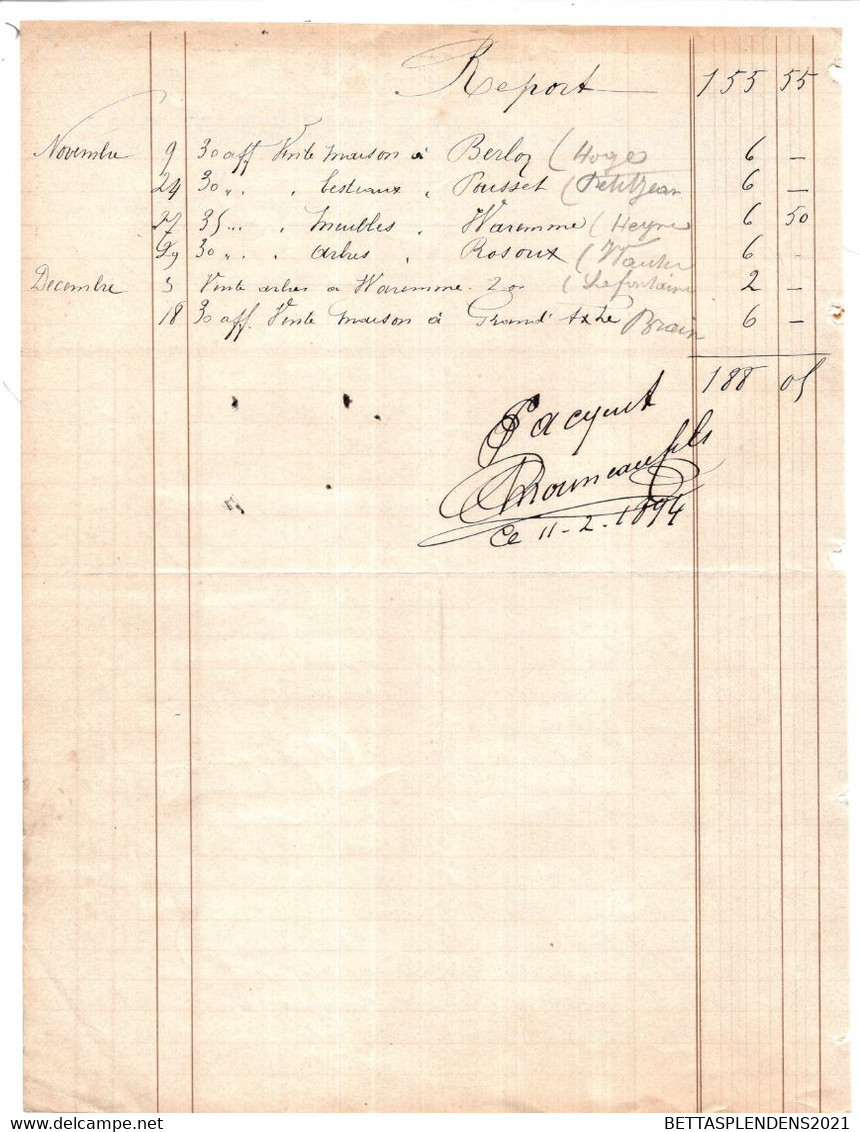 Report 155 55
Novembre 9 30 aff Vente maison à Berloz (Hoge 6 —
24 30 " " bestiaux " Pousset (Petitjean 6 —
27 35 " " meubles " Waremme (Heyne 6 50
29 30 " " arbres " Rosoux (Wauter 6 -
Decembre 3 Vente arbres a Waremme (Lafontaine 2 —
18 30 aff. Vente maison à Grand' Axhe Brain 6 —
188 05
Pr acquit
fils
Ce 11-2-1894
BETTASPLENDENS2021